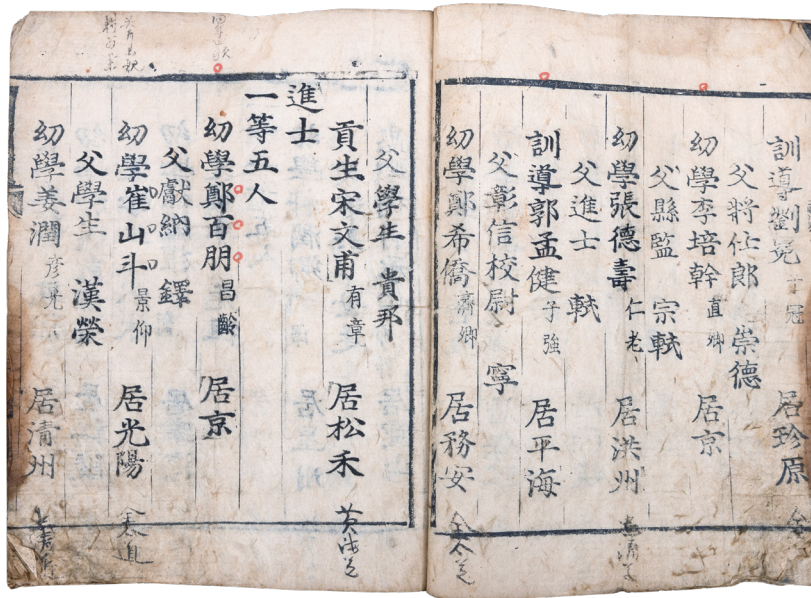 訓導劉冕 子冠 居珍原
父將仕郎 崇德
幼學李培幹 直卿 居京
父縣監 宗軾
幼學張德壽 仁老 居洪州
父進士 軾
訓導郭孟健 子強 居平海
父彰信校尉 寧
幼學鄭希僑 喬卿 居務安
父學生 貴邦
貢生宋文甫 有章 居松禾
進士
一等五人
幼學鄭百朋 昌齡 居京
父獻納 鐸
幼學崔山斗 景仰 居光陽
父學生 漢榮
幼學姜潤 居清州